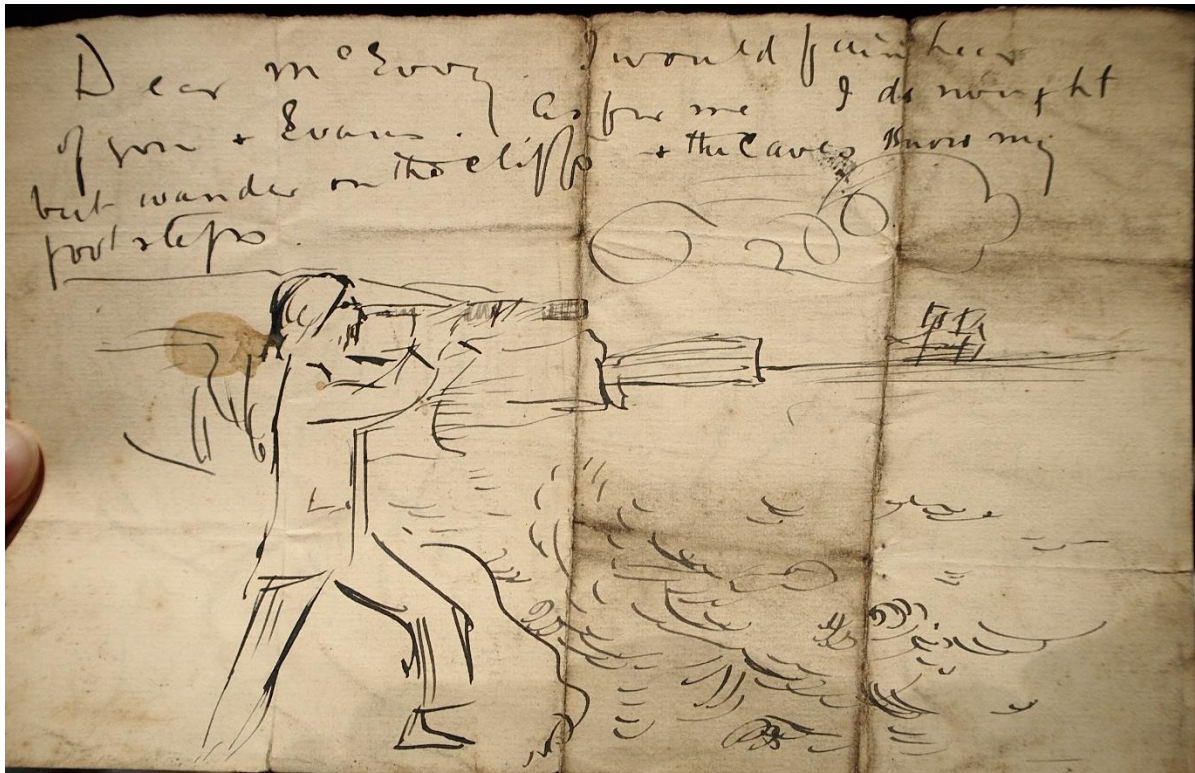 Dear McEvoy. I would fain hear
of you + Evans. As for me I do nought
but wander on the cliffs + the Caves Know my
footsteps.